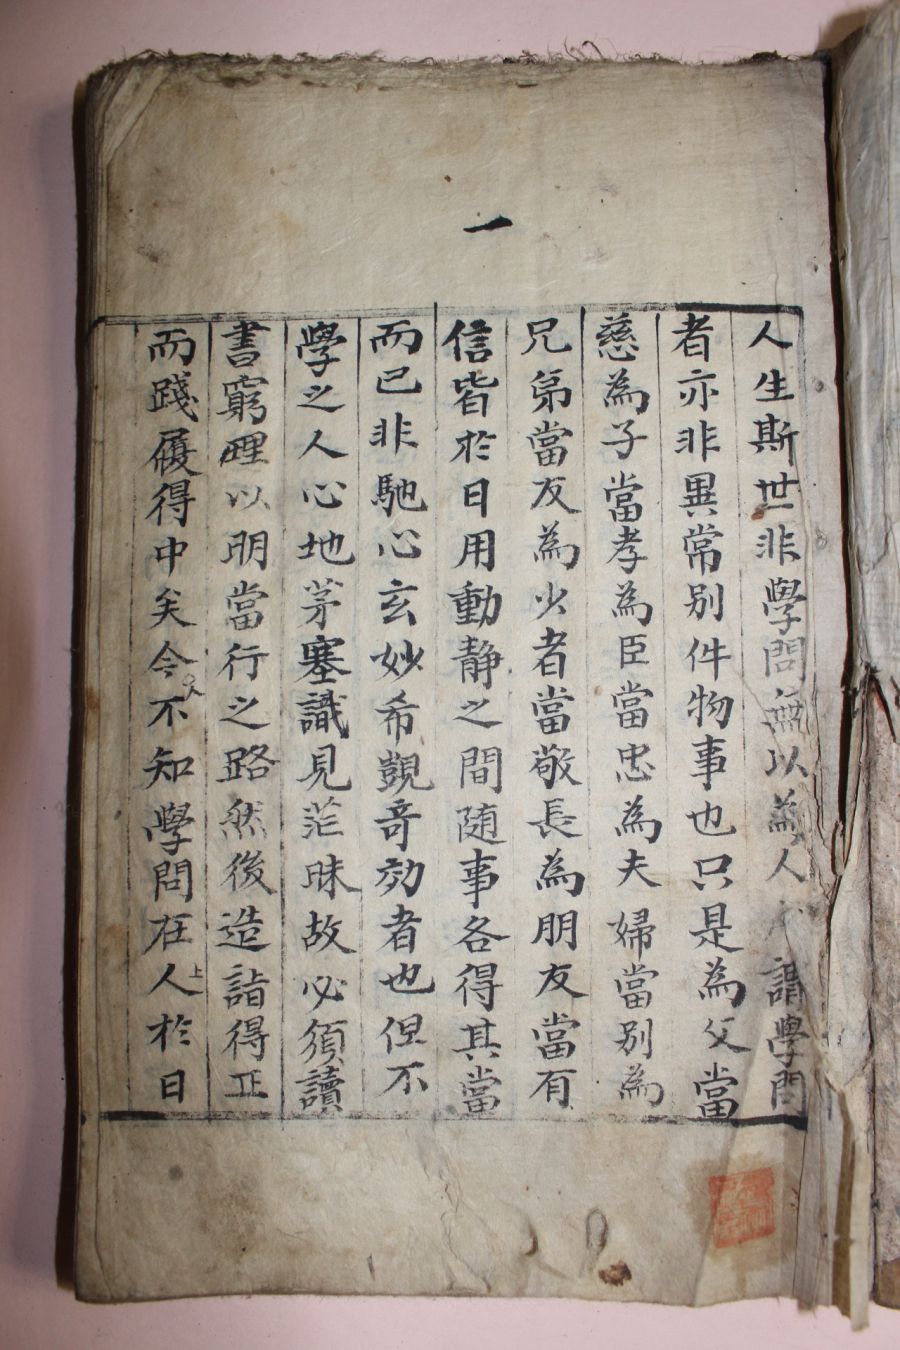 一
人生斯世非學問無以為人所謂學問
者亦非異常別件物事也只是為父當
慈為子當孝為臣當忠為夫婦當別為
兄弟當友為少者當敬長為朋友當有
信皆於日用動靜之間隨事各得其當
而已非馳心玄妙希覬奇効者也但不
學之人心地茅塞識見茫昧故必須讀
書窮理以明當行之路然後造詣得正
而踐履得中矣今不知學問在人於日
人
上